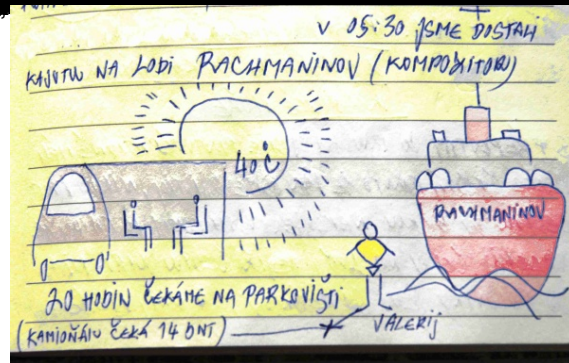 V 05:30 JSME DOSTALI
KAJUTU NA LODI RACHMANINOV (KOMPOZITOR)
40°C
RACHMANINOV
20 HODIN ČEKÁME NA PARKOVIŠTI
(KAMIOŇÁŘŮ ČEKÁ 14 DNÍ)
VALERIJ